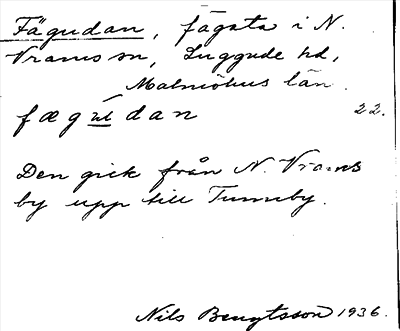 Fägudan, fägata i N.
Vrams sn, Luggude hd,
Malmöhus län.
fægúdan 22.
Den gick från N. Vrams
by upp till Tunneby.
Nils Bengtsson 1936.